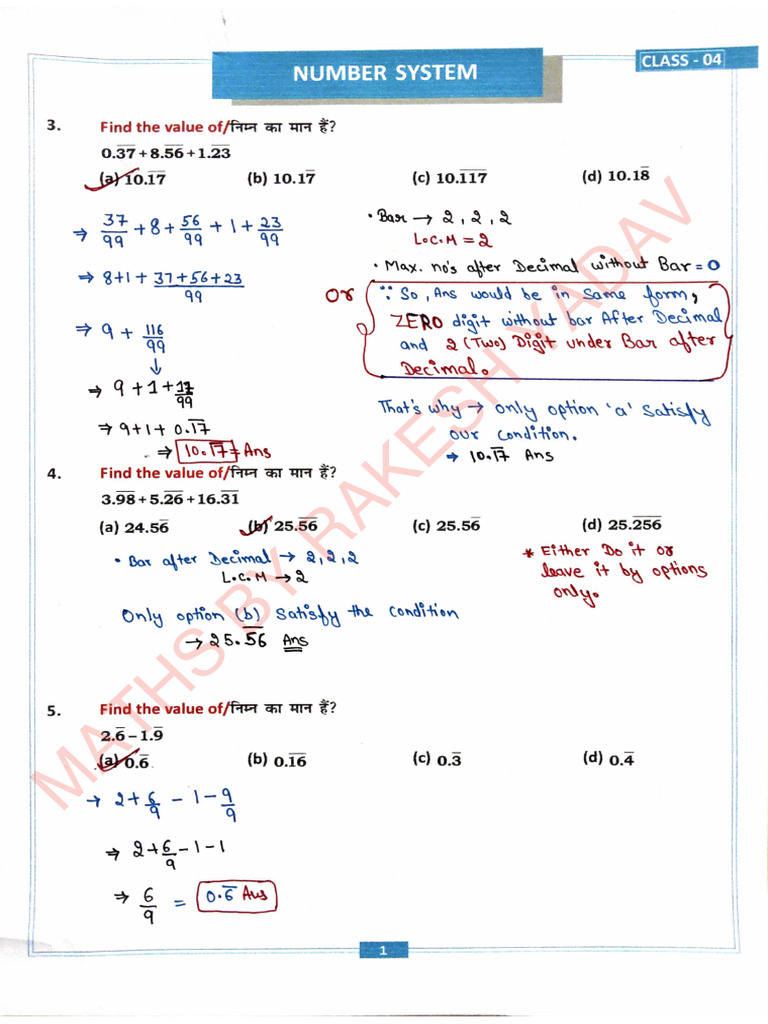 NUMBER SYSTEM
CLASS - 04
3. Find the value of/निम्न का मान हैं?
0.3̅7̅ + 8.5̅6̅ + 1.2̅3̅
(a) 10.1̅7̅ (b) 10.17̅ (c) 10.1̅1̅7̅ (d) 10.18̅
⇒ 37/99 + 8 + 56/99 + 1 + 23/99
⇒ 8+1+ 37+56+23/99
⇒ 9 + 116/99
↓
⇒ 9+1+17/99
⇒ 9+1+0.1̅7̅
⇒ 10.1̅7̅ = Ans
• Bar → 2, 2, 2
L.C.M = 2
• Max. no's after Decimal without Bar = 0
Or ∵ So, Ans would be in same form,
ZERO digit without bar After Decimal
and 2 (Two) Digit under Bar after
Decimal.
That's why → only option 'a' satisfy
our condition.
→ 10.1̅7̅ Ans
4. Find the value of/निम्न का मान हैं?
3.9̅8̅ + 5.2̅6̅ + 16.3̅1̅
(a) 24.56̅ (b) 25.5̅6̅ (c) 25.56̅ (d) 25.2̅5̅6̅
• Bar after Decimal → 2, 2, 2
L.C.M → 2
Only option (b) satisfy the condition
→ 25.5̅6̅ Ans
* Either Do it or
leave it by options
only.
5. Find the value of/निम्न का मान हैं?
2.6̅ – 1.9̅
(a) 0.6̅ (b) 0.1̅6̅ (c) 0.3̅ (d) 0.4̅
→ 2+6/9 - 1 - 9/9
⇒ 2+6/9 - 1 - 1
⇒ 6/9 = 0.6̅ Ans
MATHS BY RAKESH YADAV
1